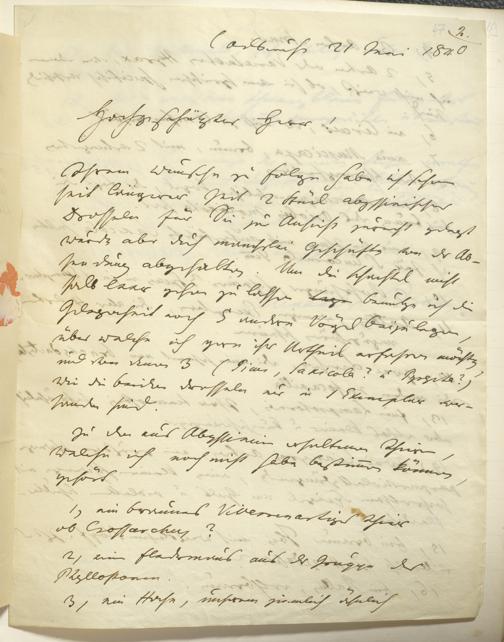 2.
Carlsruhe 21 Juni 1840
Hochgeschätzter Herr!
Ihrem Wunsche zu Folge habe ich schon
seit längerer Zeit 2 Stück abyssinischer
Drosseln für Sie zur Ansicht zurecht gelegt
wurde aber durch mancherlei Geschäfte von der Ab-
sendung abgehalten. Um die Schachtel nicht
halb leer gehen zu lassen benütze ich die
Gelegenheit noch 5 andere Vögel beizulegen,
über welche ich gern ihr Urtheil erfahren möchte,
und von denen 3 (Picus, Saxicola? u Pyrgita?)
wie die beiden Drosseln nur in 1 Exemplar vor-
handen sind.
Zu den aus Abyssinien erhaltenen Thieren,
welche ich noch nicht habe bestimmen können,
gehört
1, ein braunes Viverrenartiges Thier
ob Crossarchus?
2, eine Fledermaus aus der Gruppe der
Phyllostomen.
3, ein Hase, unserem ziemlich ähnlich